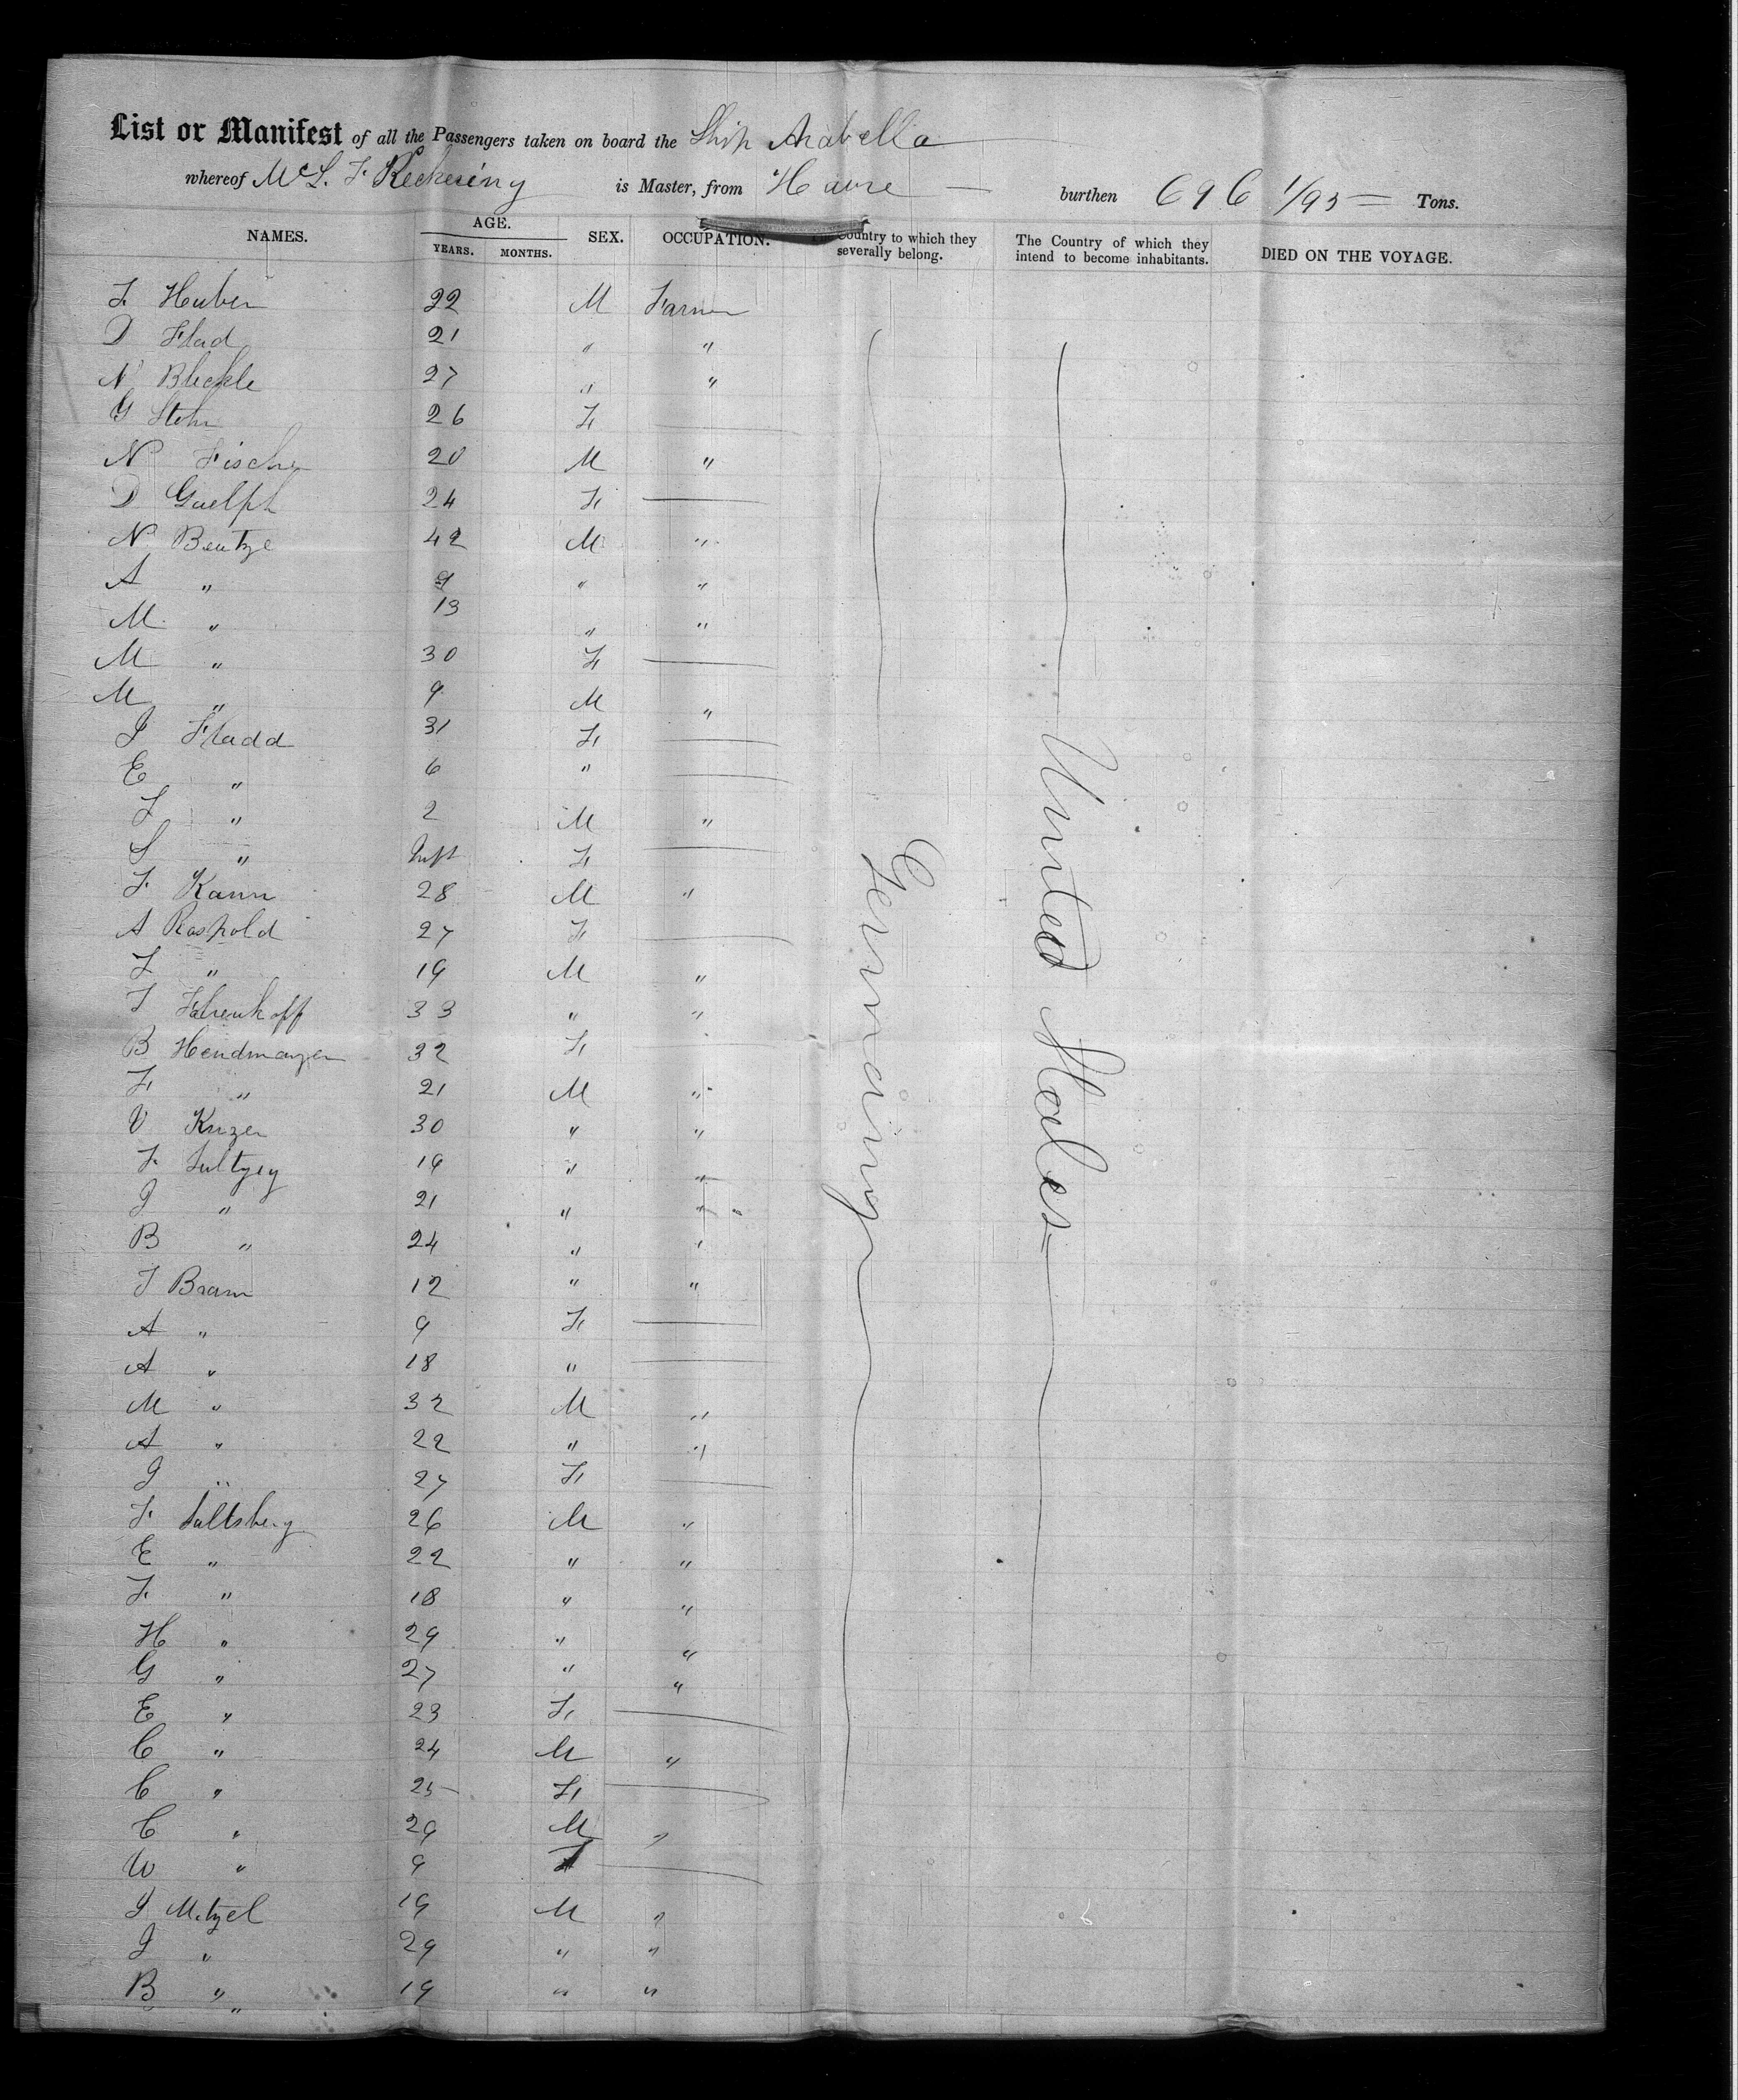 List or Manifest of all the Passengers taken on board the Ship Arabella
whereof McL. F. Pickering is Master, from Havre — burthen 696 1/95 = Tons.
NAMES. AGE. YEARS. MONTHS. SEX. OCCUPATION. Country to which they severally belong. The Country of which they intend to become inhabitants. DIED ON THE VOYAGE.
F. Huber 22 M Farmer
D Flad 21 " "
N Bleckle 27 " "
G Stohr 26 F —
N Fischer 20 M "
D Guelph 24 F —
N Beutze 42 M "
A " 9 " "
M " 13 " "
M " 30 F —
M " 9 M "
J Fladd 31 F —
E " 6 " —
F " 2 M "
S " Inft F —
F. Kann 28 M "
A Raspold 27 F —
F " 19 M "
F Fahrenkopf 33 " "
B Hendmanger 32 F —
F " 21 M "
V Kruzer 30 " "
F. 19 " "
J " 21 " "
B " 24 " "
F Bram 12 " "
A " 9 F —
A " 18 " —
M " 32 M "
A " 22 " "
J " 27 F —
F. Saltsberg 26 M "
E " 22 " "
F. " 18 " "
H " 29 " "
G " 27 " "
E " 23 F —
C " 24 M "
C " 25 F —
C " 29 M "
W " 9 F —
J Mitzel 19 M "
J " 29 " "
B " 19 " "
"
Germany
United States